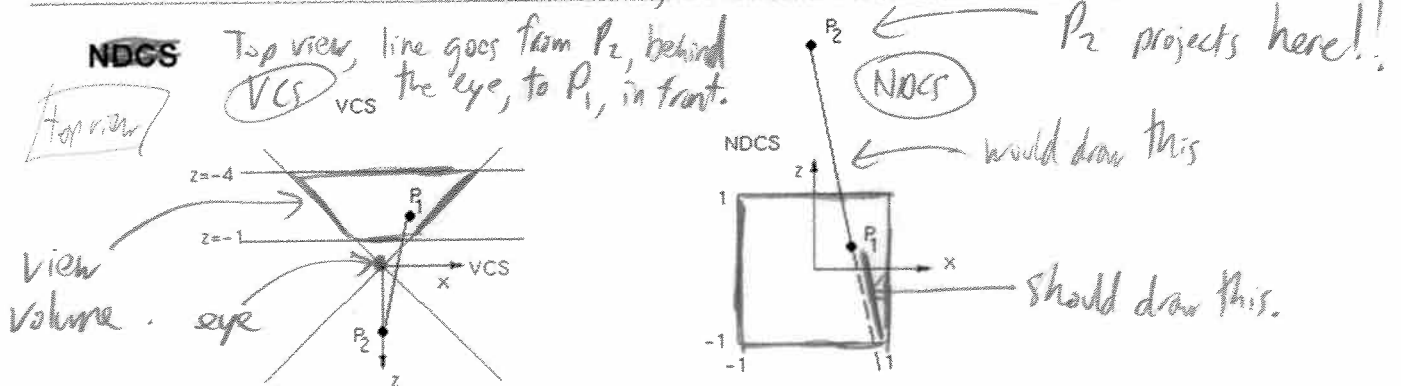 NDCS
Top view, line goes from P2, behind
VCS the eye, to P1, in front.
VCS
top view
z=-4
P1
z=-1
VCS
x
view
volume.
eye
P2
z
P2
P2 projects here!!
NDCS
NDCS
would draw this
z
1
P1
x
should draw this.
-1
-1
1